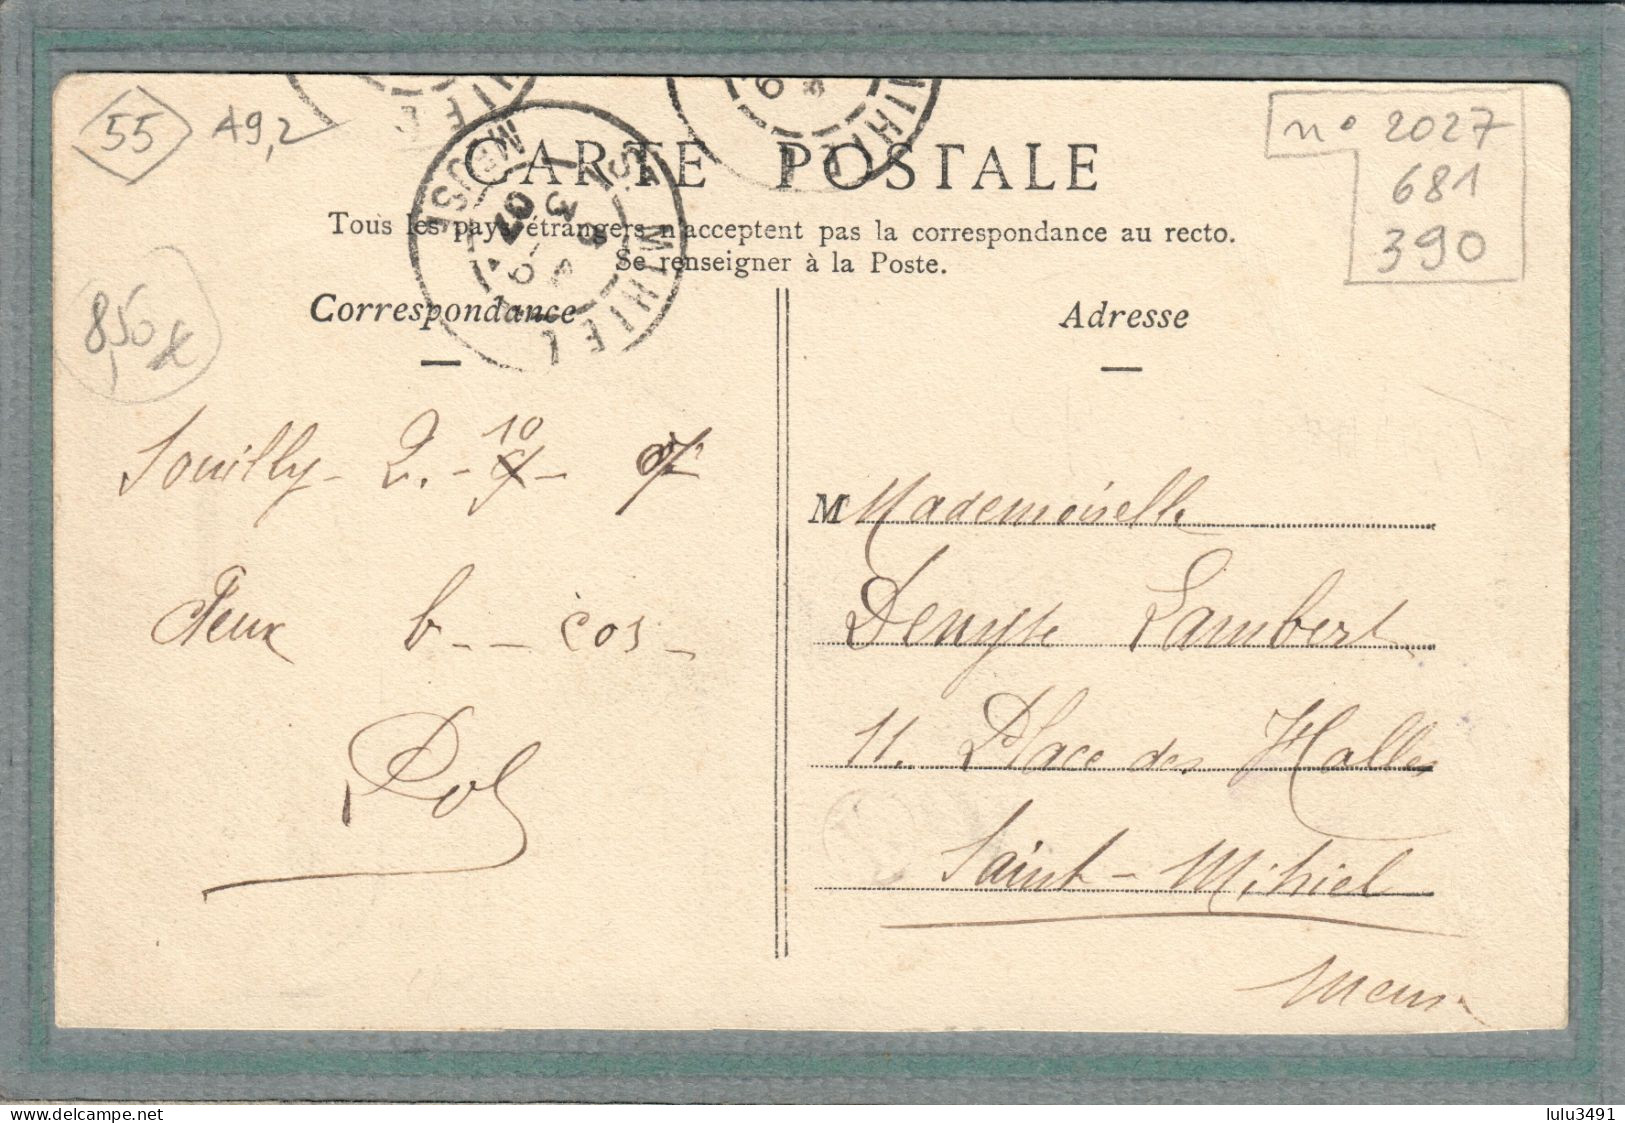 55
A9,2
n° 2027
681
390
CARTE POSTALE
Tous les pays étrangers n'acceptent pas la correspondance au recto.
Se renseigner à la Poste.
ST MIHIEL
MEUSE
07
8,50€
Correspondance
Adresse
Souilly - 2. - 10 - 07
Deux b - - cos -
Pol
M Mademoiselle
Denyse Lambert
11. Place des Halles
Saint-Mihiel
Meuse
Delcampe.net
lulu3491